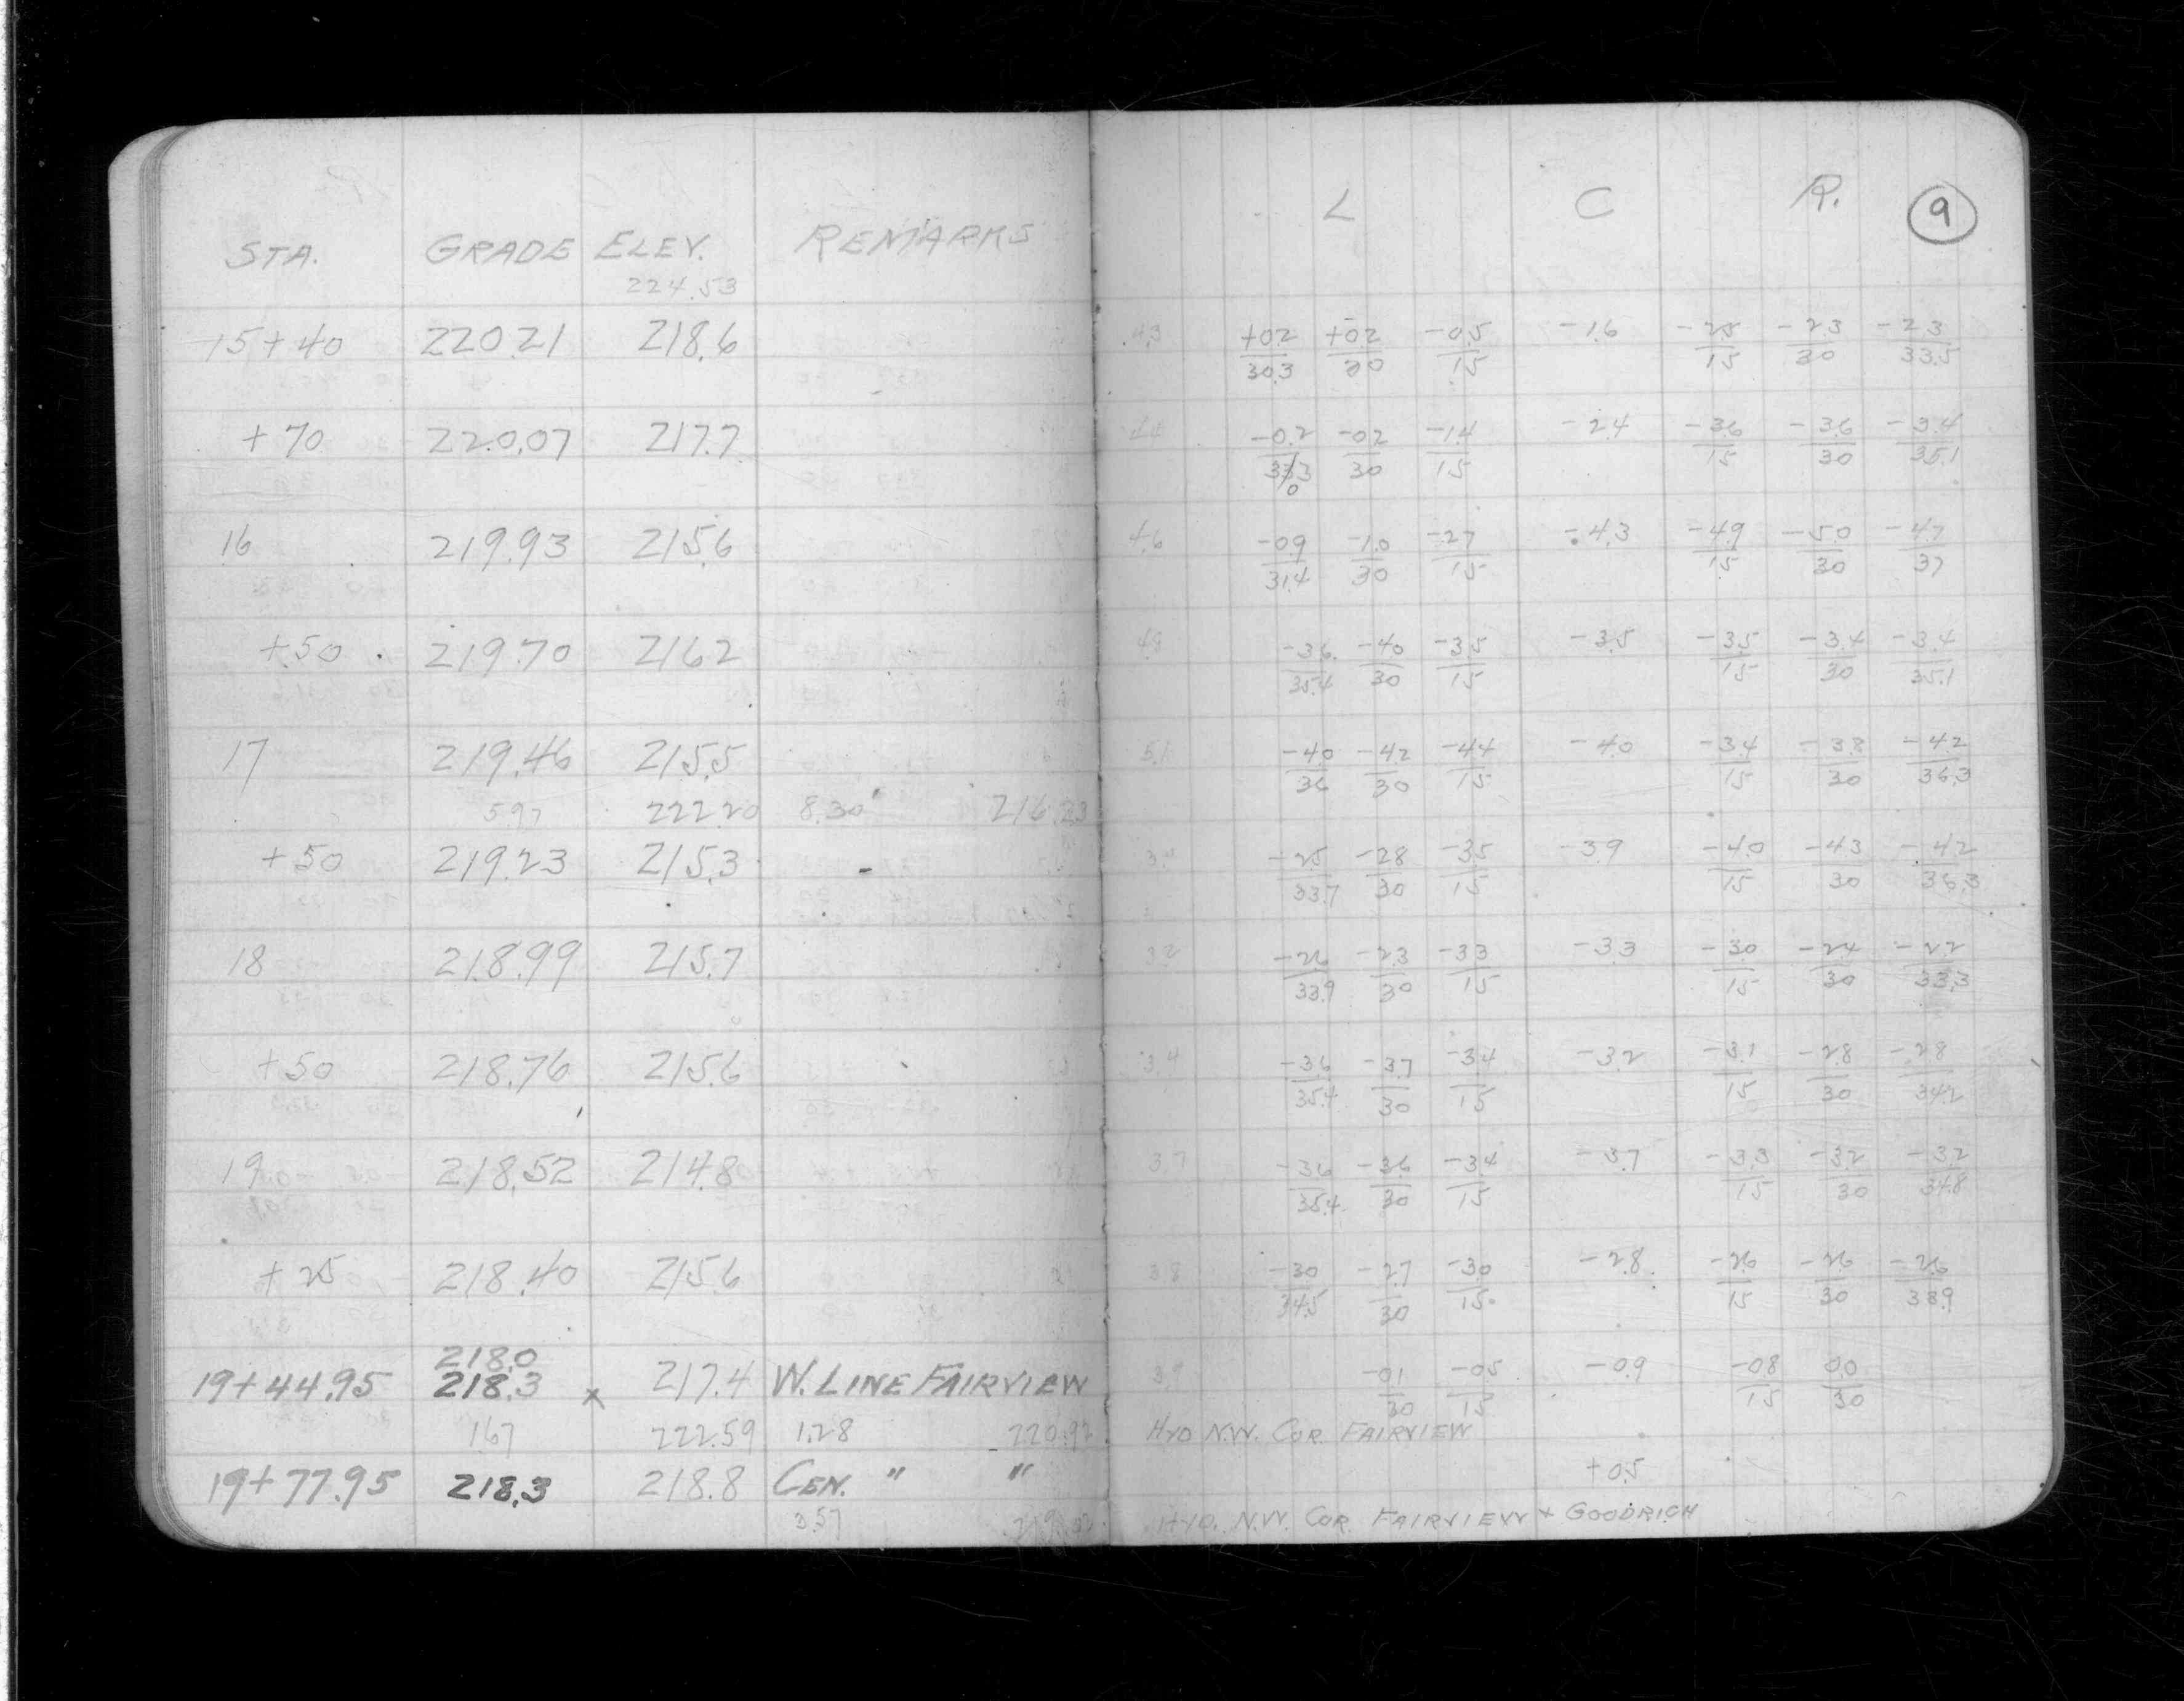 L C R. 9
STA. GRADE ELEV. REMARKS
224.53
15+40 220.21 218.6 4.3 +0.2/30.3 +0.2/30 -0.5/15 -1.6 -2.8/15 -2.3/30 -2.3/33.5
+70 220.07 217.7 4.4 -0.2 -0.2/30 -1.4/15 -2.4 -3.6/15 -3.6/30 -3.4/35.1
16 219.93 215.6 4.6 -0.9/31.4 -1.0/30 -2.7/15 -4.3 -4.9/15 -5.0/30 -4.7/37
+50 219.70 216.2 4.8 -3.6/35.4 -4.0/30 -3.5/15 -3.5 -3.5/15 -3.4/30 -3.4/35.1
17 219.46 215.5 5.1 -4.0/36 -4.2/30 -4.4/15 -4.0 -3.4/15 -3.8/30 -4.2/36.3
5.97 222.20 8.30 216.23
+50 219.23 215.3 -2.5/33.7 -2.8/30 -3.5/15 -3.9 -4.0/15 -4.3/30 -4.2/36.3
18 218.99 215.7 3.2 -2.6/33.9 -2.3/30 -3.3/15 -3.3 -3.0/15 -2.4/30 -2.2/33.3
+50 218.76 215.6 3.4 -3.6/35.4 -3.7/30 -3.4/15 -3.2 -3.1/15 -2.8/30 -2.8/34.2
19 218.52 214.8 3.7 -3.6/35.4 -3.6/30 -3.4/15 -3.7 -3.3/15 -3.2/30 -3.2/34.8
+25 218.40 215.6 3.8 -3.0/34.5 -2.7/30 -3.0/15 -2.8 -2.6/15 -2.6/30 -2.6/33.9
218.0
19+44.95 218.3 x 217.4 W. LINE FAIRVIEW 3.9 -0.1/30 -0.5/15 -0.9 -0.8/15 0.0/30
1.67 222.59 1.28 220.92 HYD N.W. COR. FAIRVIEW
19+77.95 218.3 218.8 CEN. " " +0.5
3.57 HYD. N.W. COR. FAIRVIEW + GOODRICH